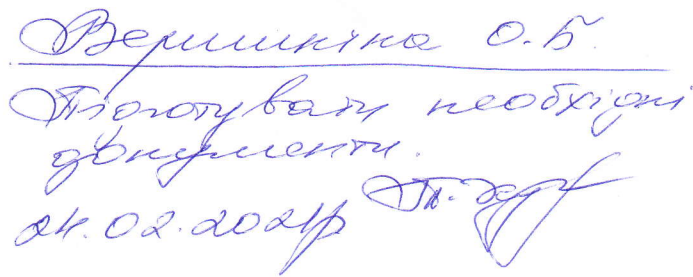 Вершиніна О.Б.
Підготувати необхідні
документи.
24.02.2021р